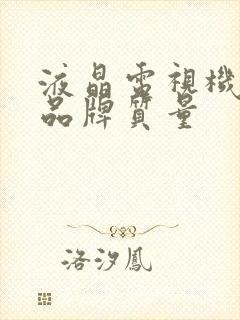 液晶電視機
品牌質量
洛汐鳳